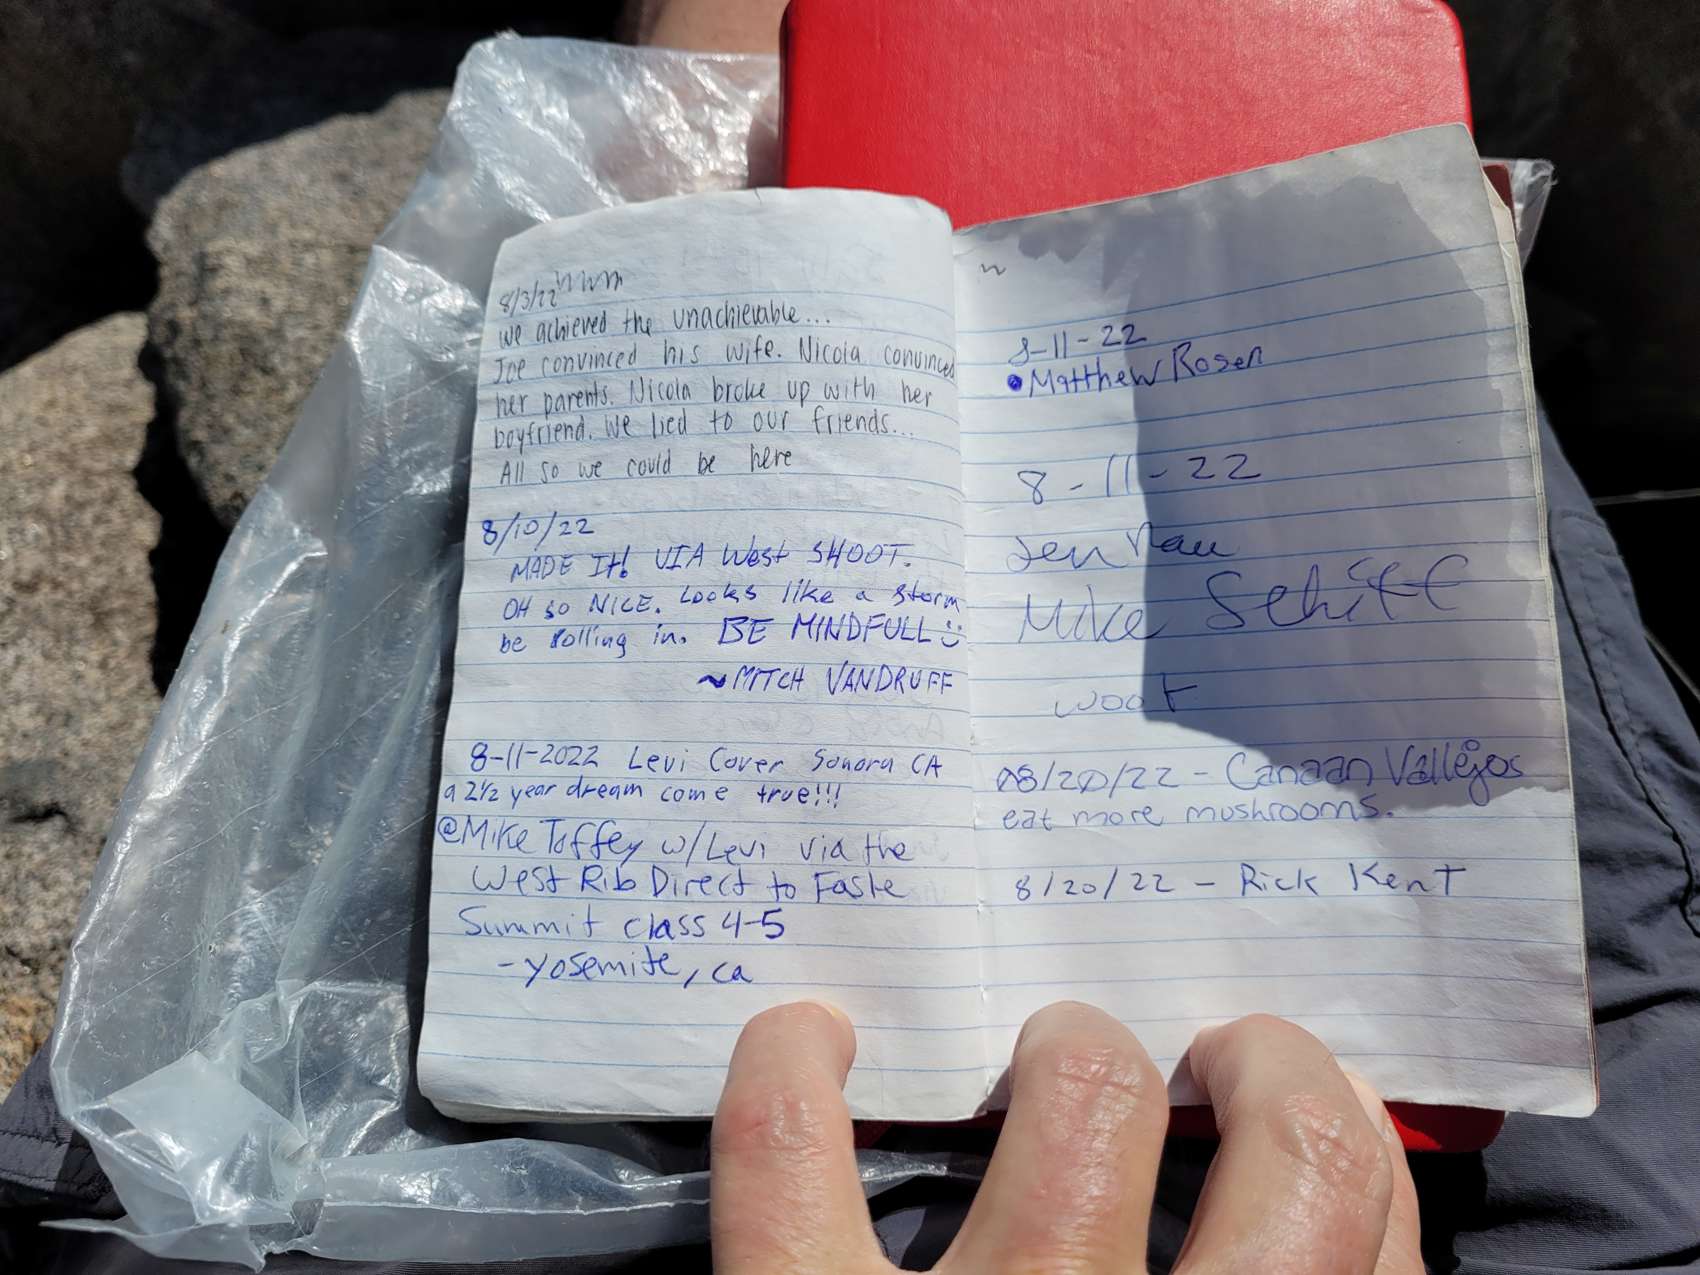 8/3/22
We achieved the unachievable...
Joe convinced his wife. Nicola convinced
her parents. Nicola broke up with her
boyfriend. We lied to our friends...
All so we could be here
8/10/22
MADE IT! VIA West SHOOT.
OH SO NICE. Looks like a storm
be rolling in. BE MINDFULL :)
~MITCH VANDRUFF
8-11-2022 Levi Cover Sonora CA
a 2½ year dream come true!!!
@Mike Toffey w/Levi via the
West Rib Direct to
Summit class 4-5
-yosemite, ca
8-11-22
•Matthew Rosen
8-11-22
Jen
Mike Schiff
woot
08/20/22 - Canaan Vallejos
eat more mushrooms.
8/20/22 - Rick Kent